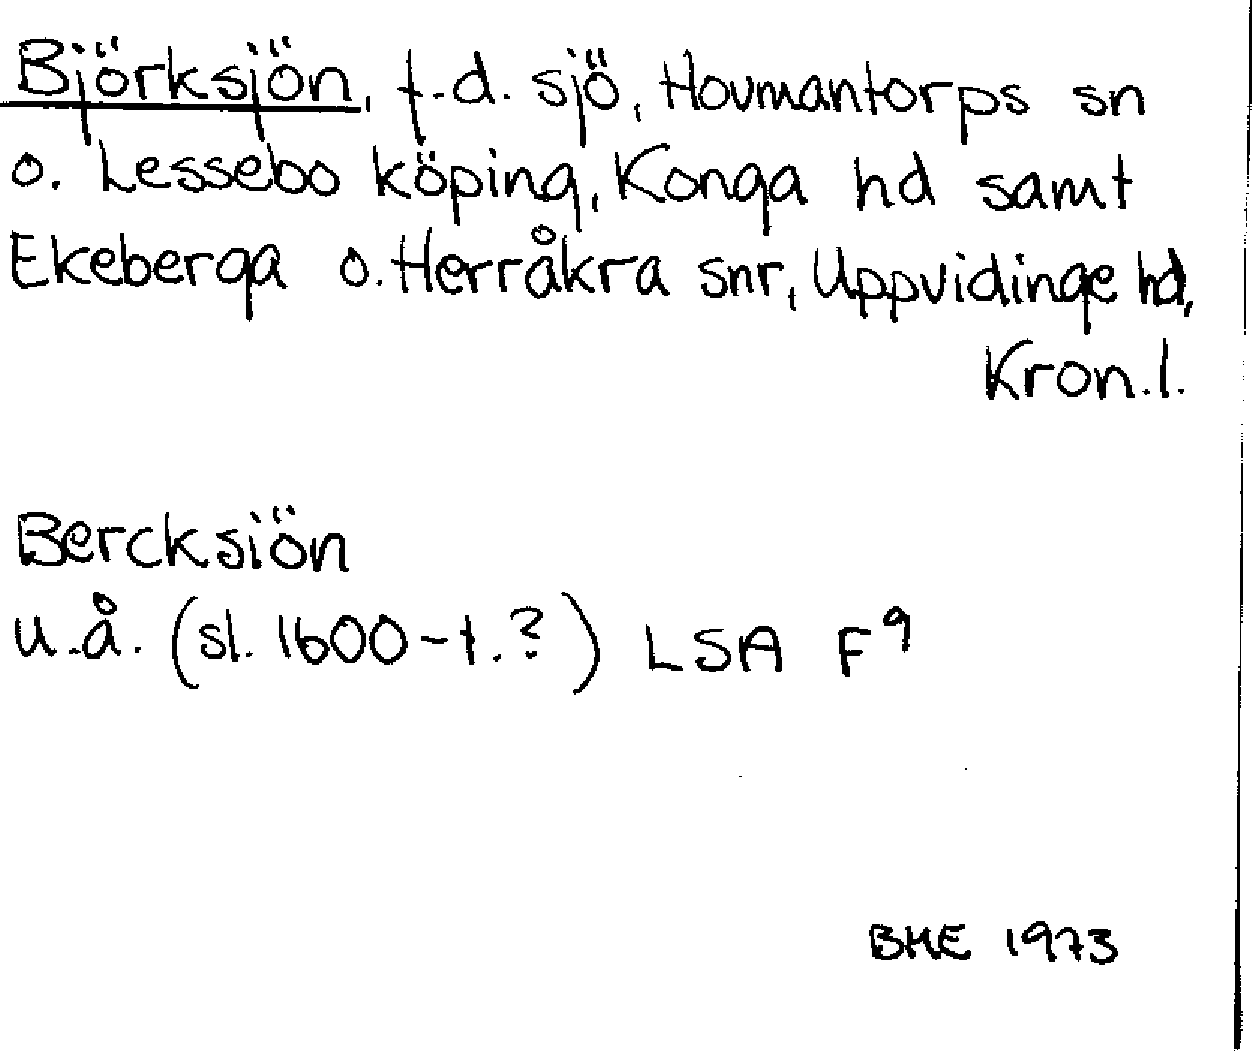 Björksjön, f.d. sjö, Hovmantorps sn
o. Lessebo köping, Konga hd samt
Ekeberga o. Herråkra snr, Uppvidinge hd,
Kron.l.
Bercksiön
u.å. (sl. 1600-t.?) LSA F9
BHE 1973